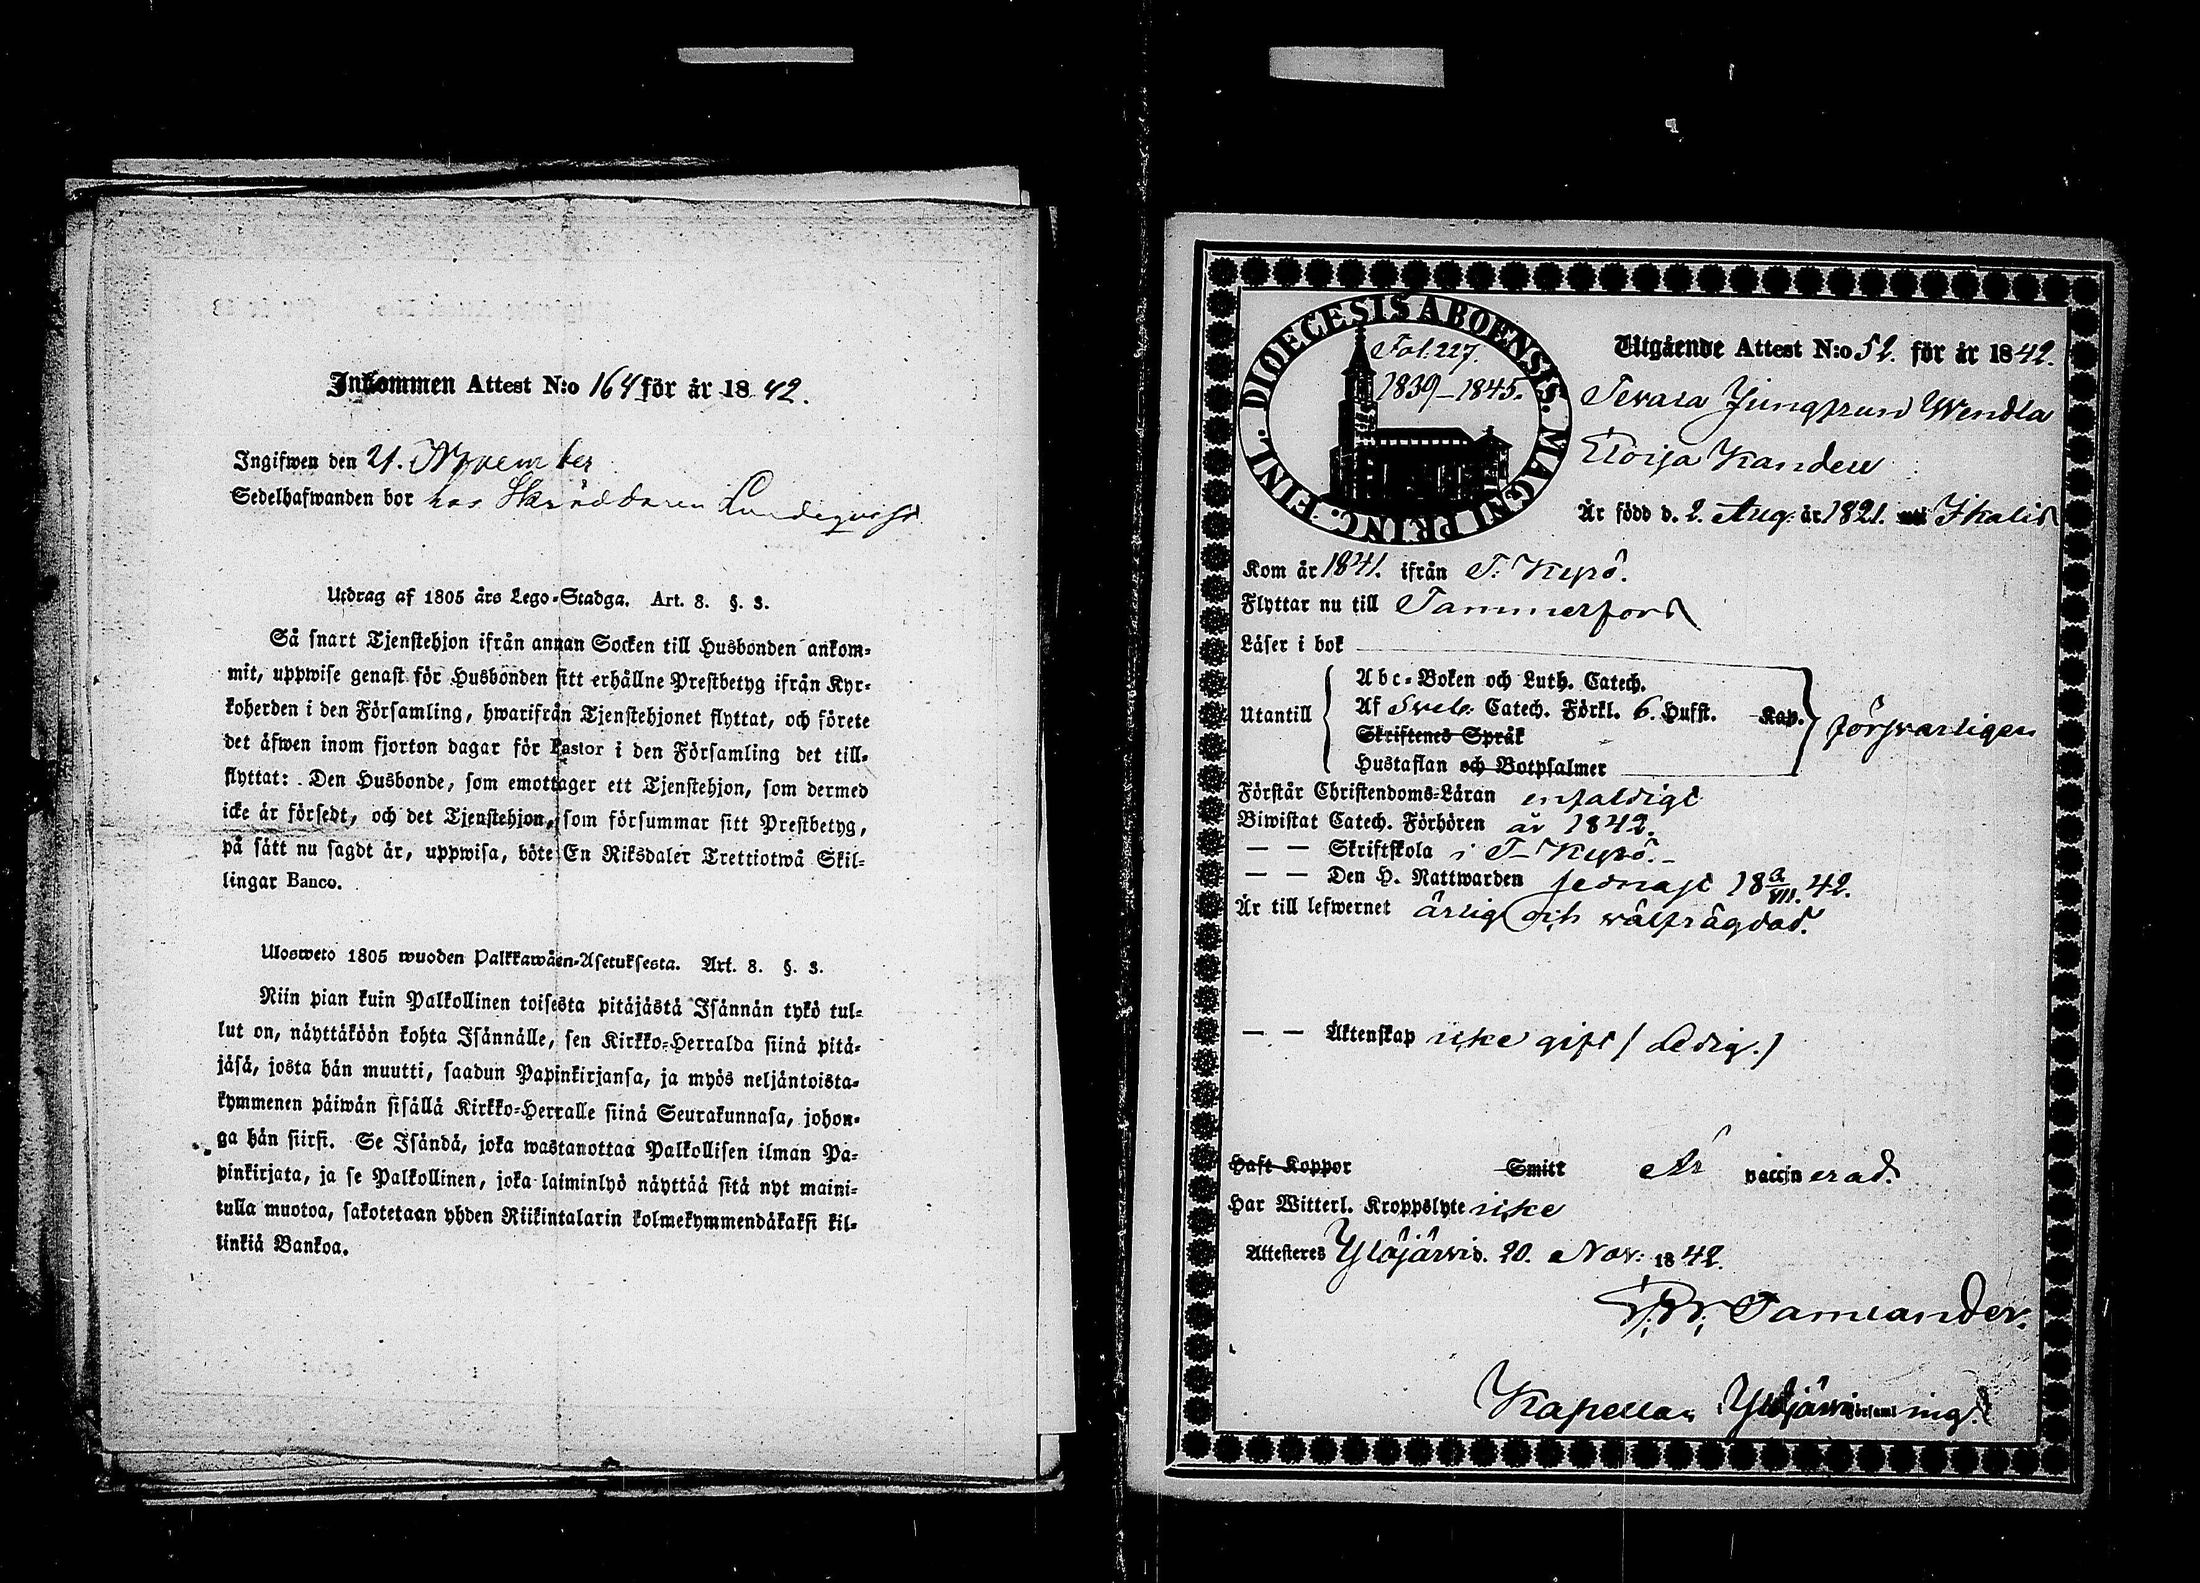 Inkommen Attest N:o 164 för år 18 42.
Ingifwen den 21. November
Sedelhafwanden bor hos Skräddaren Lundeqvist
Utdrag af 1805 års Lego-Stadga. Art. 8. §. 3.
Så snart Tjenstehjon ifrån annan Socken till Husbonden ankom-
mit, uppwise genast för Husbonden sitt erhållne Prestbetyg ifrån Kyr-
koherden i den Församling, hwarifrån Tjenstehjonet flyttat, och förete
det äfwen inom fjorton dagar för Pastor i den Församling det till-
flyttat: Den Husbonde, som emottager ett Tjenstehjon, som dermed
icke är försedt, och det Tjenstehjon, som försummar sitt Prestbetyg,
på sätt nu sagdt är, uppwisa, böte En Riksdaler Trettiotwå Skil-
lingar Banco.
Ulosweto 1805 wuoden Palkkawäen-Asetuksesta. Art. 8. §. 3.
Niin pian kuin Palkollinen toisesta pitäjästä Isännän tykö tul-
lut on, näyttäköön kohta Isännälle, sen Kirkko-Herralda siinä pitä-
jäsä, josta hän muutti, saadun Papinkirjansa, ja myös neljäntoista-
kymmenen päiwän sisällä Kirkko-Herralle siinä Seurakunnasa, johon-
ga hän siirsi. Se Isändä, joka wastanottaa Palkollisen ilman Pa-
pinkirjata, ja se Palkollinen, joka laiminlyö näyttää sitä nyt maini-
tulla muotoa, sakotetaan yhden Riikintalarin kolmekymmendäkaksi kil-
linkiä Bankoa.
DIOECESIS ABOENSIS. MAGNI PRINC. FINL.
Fol. 227.
1839–1845.
Utgående Attest N:o 52. för år 1842.
Jungfrun Wendla
Är född d. 2. Aug: år 1821. Ikalis
Kom år 1841. ifrån T: Kyrö.
Flyttar nu till Tammerfors
Läser i bok
Abc-Boken och Luth. Catech.
Utantill Af Sveb. Catech. Förkl. 6. Hufst. Kap. försvarligen
Skriftenes Språk
Hustaflan och Botpsalmer
Förstår Christendoms-Läran enfaldigt
Biwistat Catech. Förhören år 1842.
— — Skriftskola i T– Kyrö.
— — Den H. Nattwarden sednast 18 3/VII. 42.
Är till lefwernet ärlig och wälfrägdad.
— — Äktenskap icke gift / Ledig. /
Haft Koppor Smitt Är vaccinerad.
Har Witterl. Kroppslyte icke
Attesteres Ylöjärwi d. 20. Nov: 1842.
Tamlander.
Kapellan i Ylöjärwi Församling